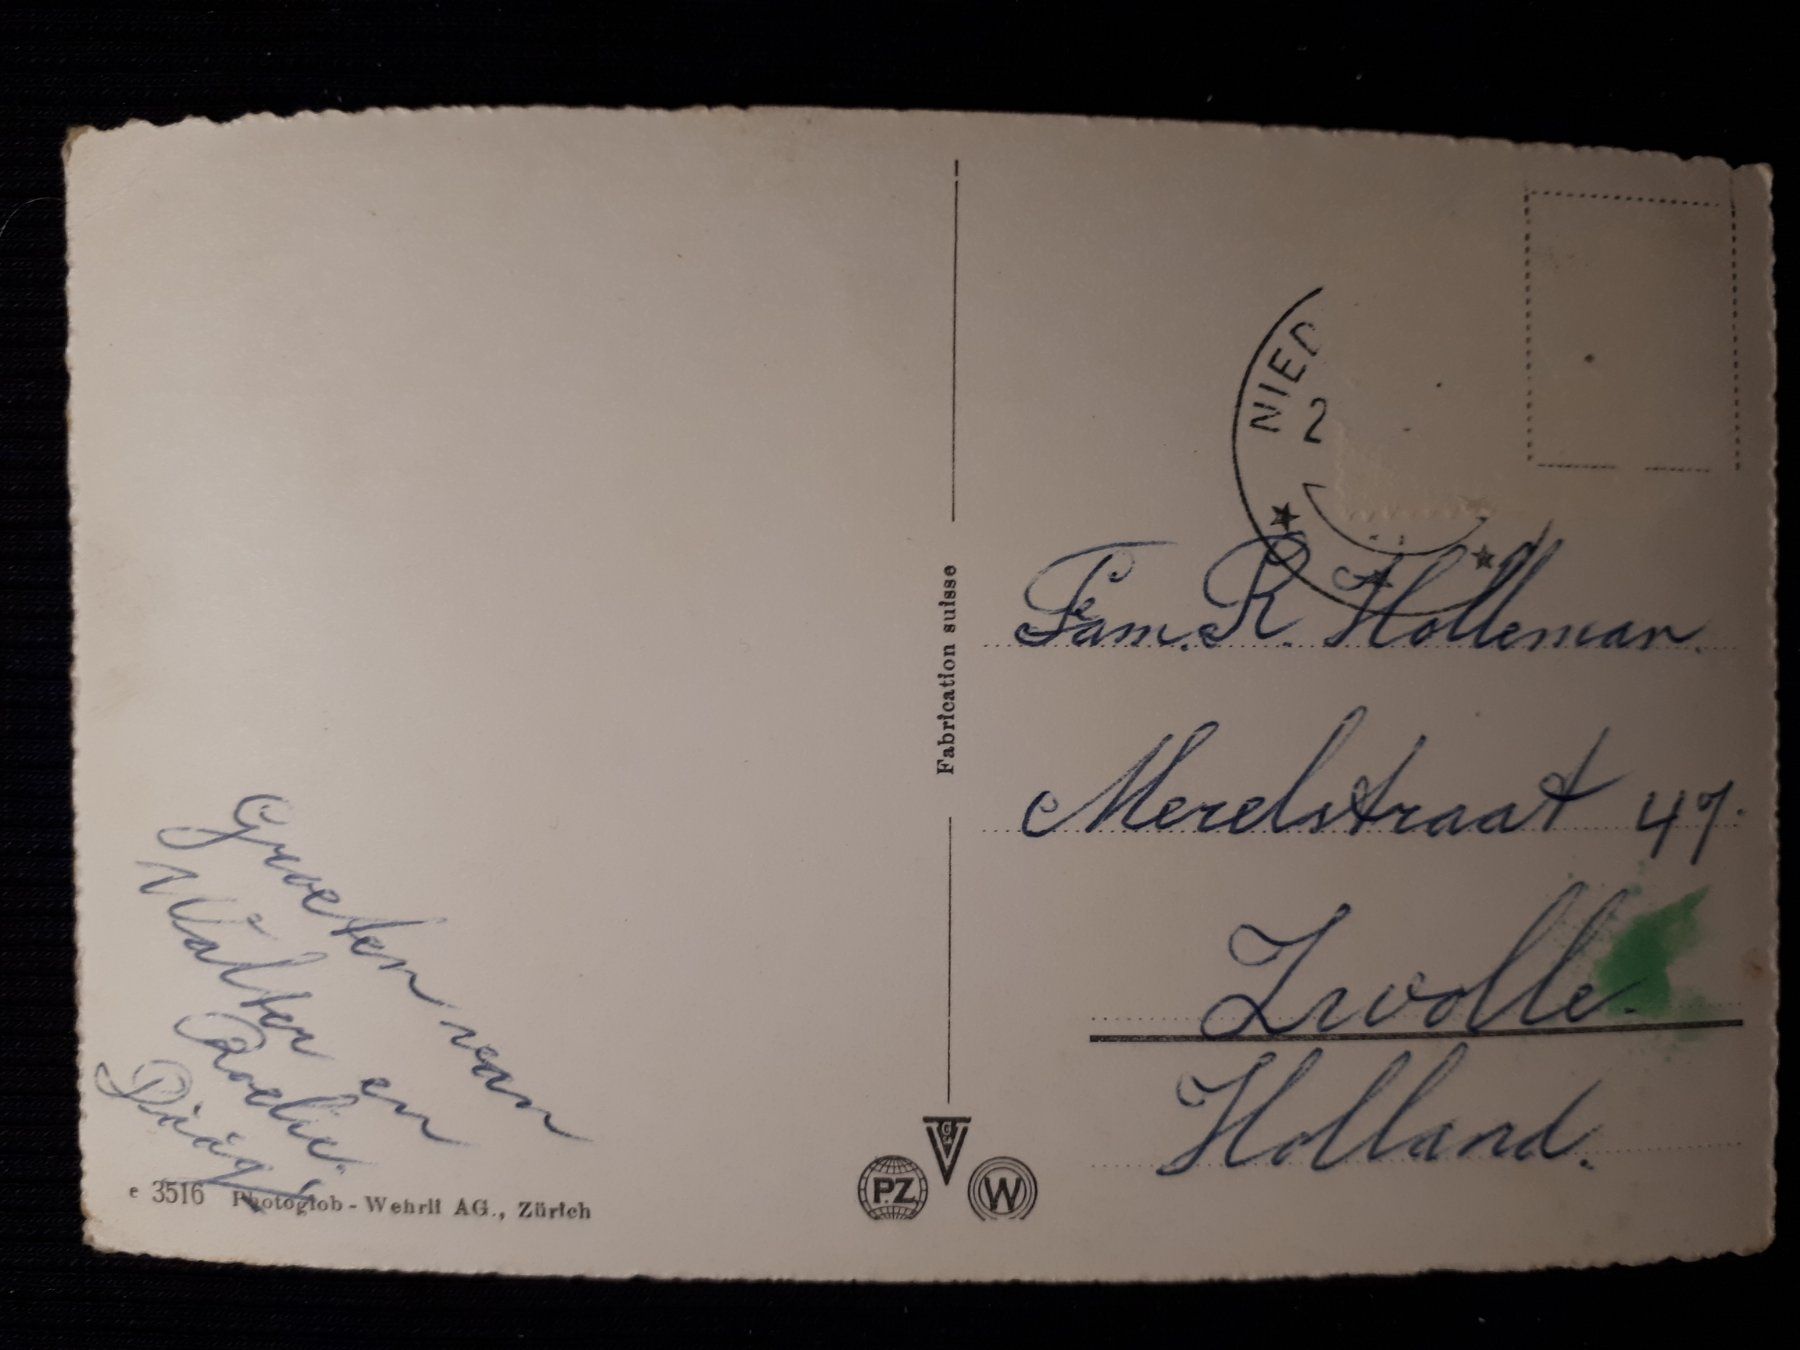 Groeten van
Walter en
Roelie.
e 3516 Photoglob-Wehrli AG., Zürich
Fabrication suisse
PZ
W
NIED
2
Fam. R. Holleman.
Merelstraat 47.
Zwolle.
Holland.